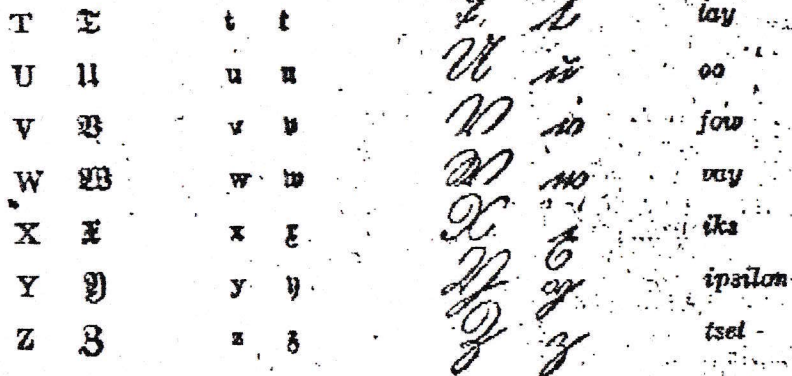 T T t t T t tay
U U u u U u oo
V V v v V v fow
W W w w W w vay
X X x x X x iks
Y Y y y Y y ipsilon
Z Z z z Z z tset